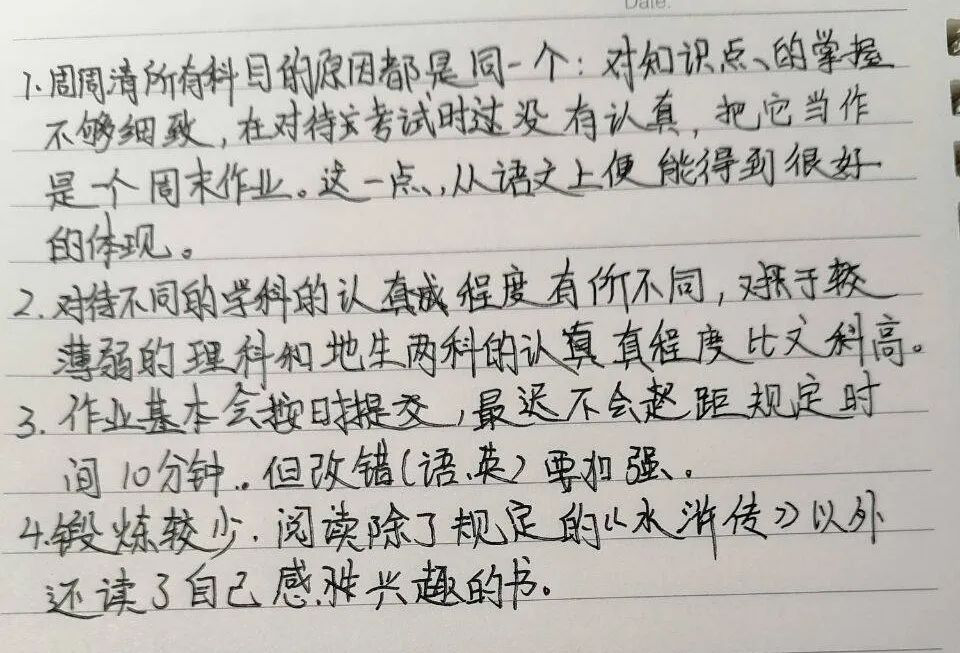 Date:
1.周周清所有科目的原因都是同一个:对知识点、的掌握
不够细致,在对待考试时过没有认真,把它当作
是一个周末作业。这一点,从语文上便能得到很好
的体现。
2.对待不同的学科的认真程度有所不同,对于较
薄弱的理科和地生两科的认真真程度比文科高。
3.作业基本会按时提交,最迟不会超距规定时
间10分钟..但改错(语.英)要加强、
4.锻炼较少.阅读除了规定的《水浒传》以外
还读了自己感兴趣的书。